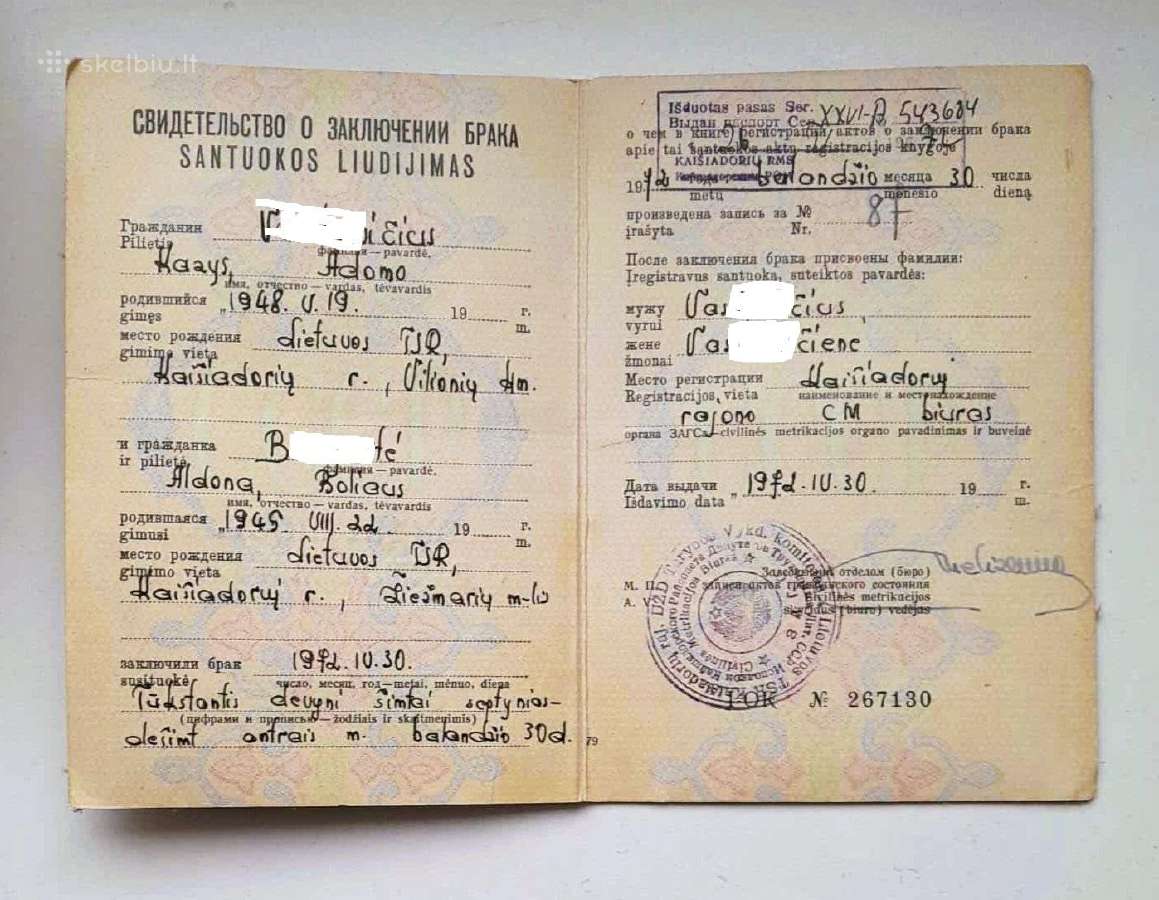 skelbiu.lt
СВИДЕТЕЛЬСТВО О ЗАКЛЮЧЕНИИ БРАКА
SANTUOKOS LIUDIJIMAS
Гражданин
Pilietis
фамилия — pavardė,
Kazys, Adomo
имя, отчество — vardas, tėvavardis
родившийся „1948. V. 19. 19 г.
gimęs m.
место рождения Lietuvos TSR,
gimimo vieta
Kaišiadorių r., Vilionių km.
и гражданка
ir pilietė
фамилия — pavardė,
Aldona, Boliaus
имя, отчество — vardas, tėvavardis
родившаяся „1945 VIII. 22. 19 г.
gimusi m.
место рождения Lietuvos TSR,
gimimo vieta
Kaišiadorių r., Žiežmarių m-lis
заключили брак 1972. IV. 30.
susituokė число, месяц, год — metai, mėnuo, diena
Tūkstantis devyni šimtai septynias-
(цифрами и прописью — žodžiais ir skaitmenimis)
dešimt antrais m. balandžio 30d.
79
Išduotas pasas Ser. XXVI-A 543684
Выдан паспорт Сер.
о чем в книге регистрации актов о заключении брака
apie tai santuokos aktų registracijos knygoje
KAIŠIADORIŲ RMS
1972 года balandžio месяца 30 числа
metų mėnesio dieną
произведена запись за № 87
įrašyta Nr.
После заключения брака присвоены фамилии:
Įregistravus santuoką, suteiktos pavardės:
мужу Vas čius
vyrui
жене Vas čienė
žmonai
Место регистрации Kaišiadorių
Registracijos vieta наименование и местонахождение
rajono CM biuras
органа ЗАГСа — civilinės metrikacijos organo pavadinimas ir buveinė
Дата выдачи „1972. IV. 30. 19 г.
Išdavimo data m.
Заведующий отделом (бюро)
М. П. записи актов гражданского состояния
A. V. civilinės metrikacijos
skyriaus (biuro) vedėjas
I-ОК № 267130